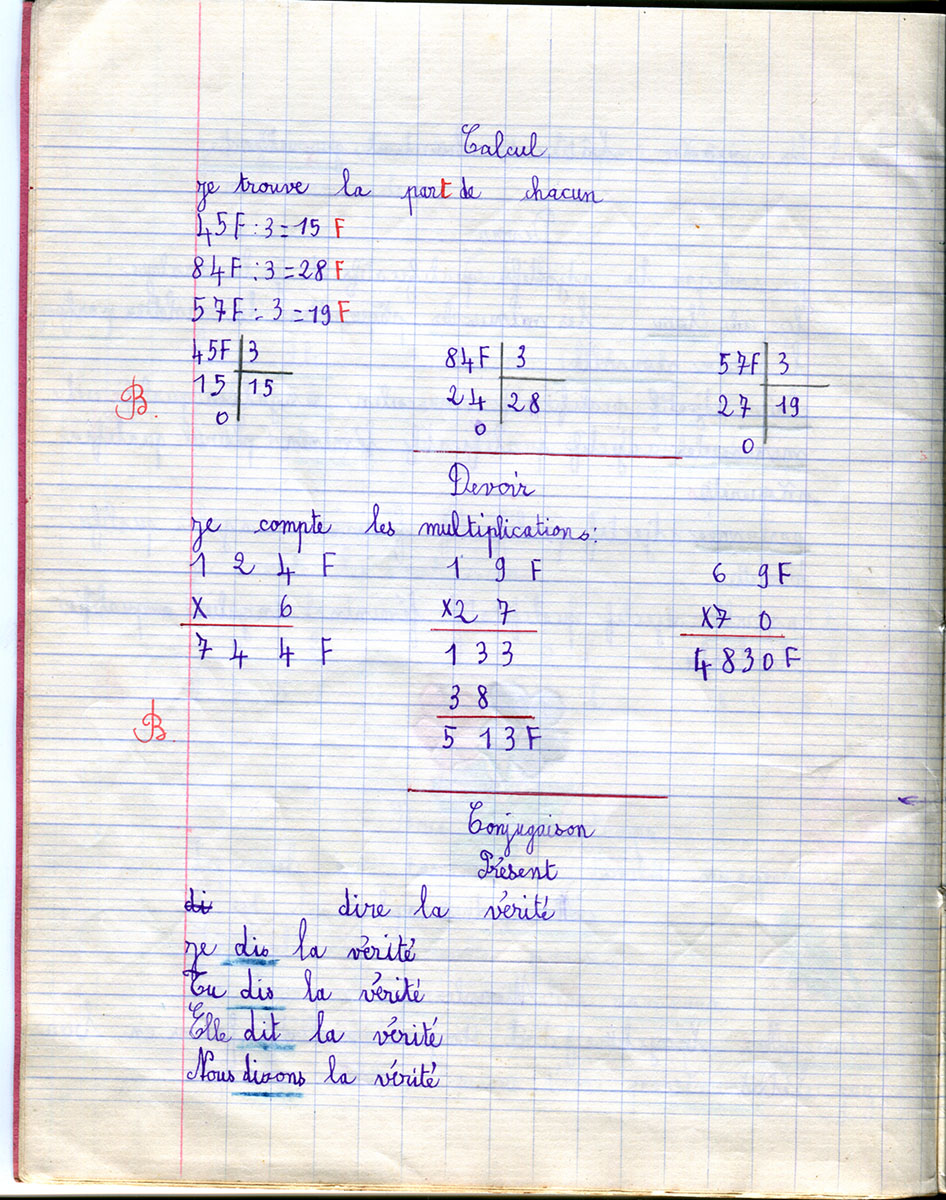 Calcul
Je trouve la part de chacun
45F : 3 = 15 F
84F : 3 = 28 F
57F : 3 = 19 F
45F 3 84F 3 57F 3
15 15 24 28 27 19
B. 0 0 0
Devoir
Je compte les multiplications :
1 2 4 F 1 9 F 6 9 F
X 6 X2 7 X7 0
7 4 4 F 1 3 3 4 8 3 0 F
3 8
B 5 1 3 F
Conjugaison
Présent
di dire la vérité
Je dis la vérité
Tu dis la vérité
Elle dit la vérité
Nous disons la vérité